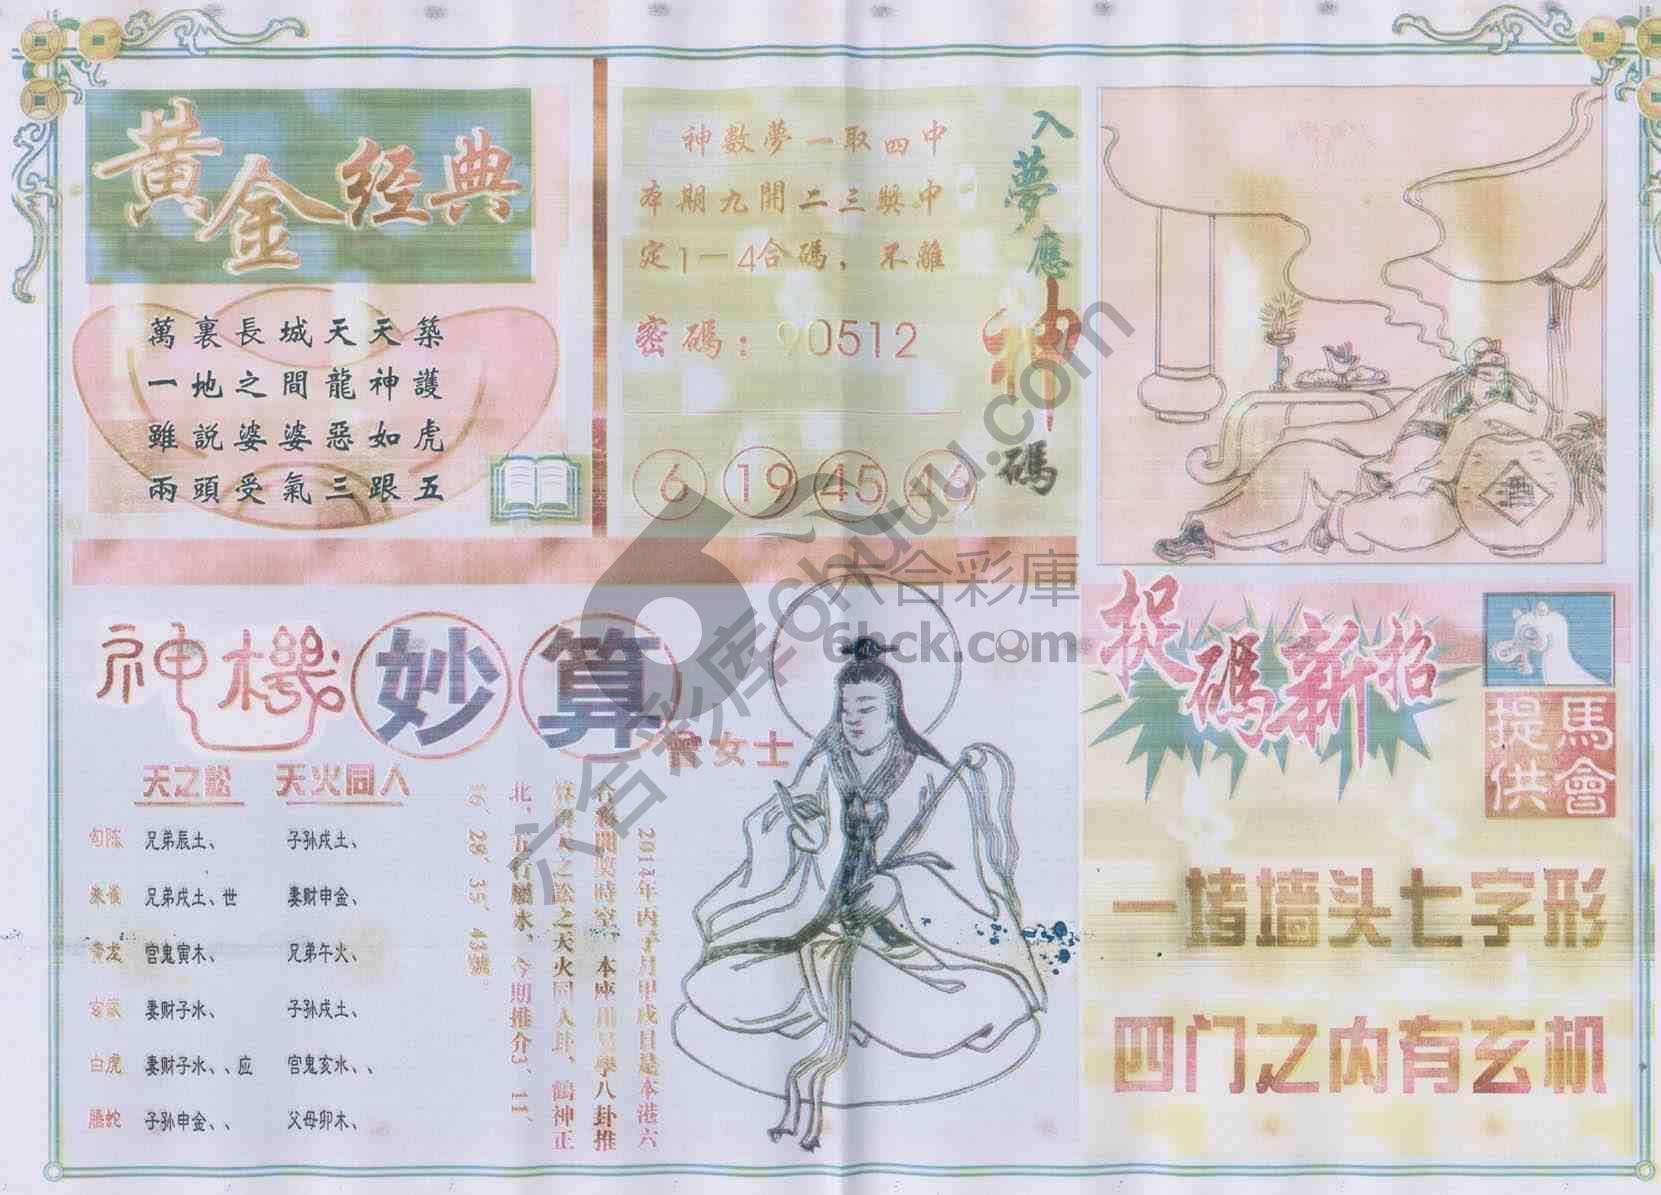 黄金经典
萬裏長城天天築
一地之間龍神護
雖說婆婆惡如虎
兩頭受氣三跟五
入夢應神碼
神數夢一取四中
本期九開二三獎中
定1—4合碼，不離
密碼：90512
6 19 45 46
神機妙算
曾女士
天之訟 天火同人
勾陈 兄弟辰土、 子孙戌土、
朱雀 兄弟戌土、世 妻财申金、
青龙 官鬼寅木、 兄弟午火、
玄武 妻财子水、 子孙戌土、
白虎 妻财子水、、应 官鬼亥水、、
腾蛇 子孙申金、、 父母卯木、
2014年丙子月甲戌日是本港六
合彩開獎時空，本座用易學八卦推
算得天之訟之天火同人卦，鶴神正
北，五行屬水，今期推介3、11、
16、28、35、43號。
捉碼新招
馬會提供
一堵墙头七字形
四门之内有玄机
酒
六合彩库
六合彩庫
6hck.com